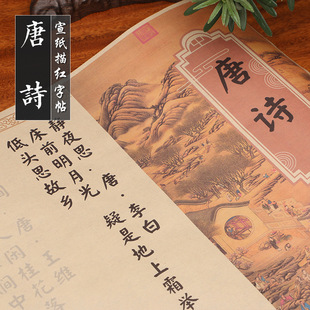 唐詩
宣纸描红字帖
唐诗
静夜思·唐·李白
床前明月光 疑是地上霜举
低头思故乡
唐·王维
人闲桂花落